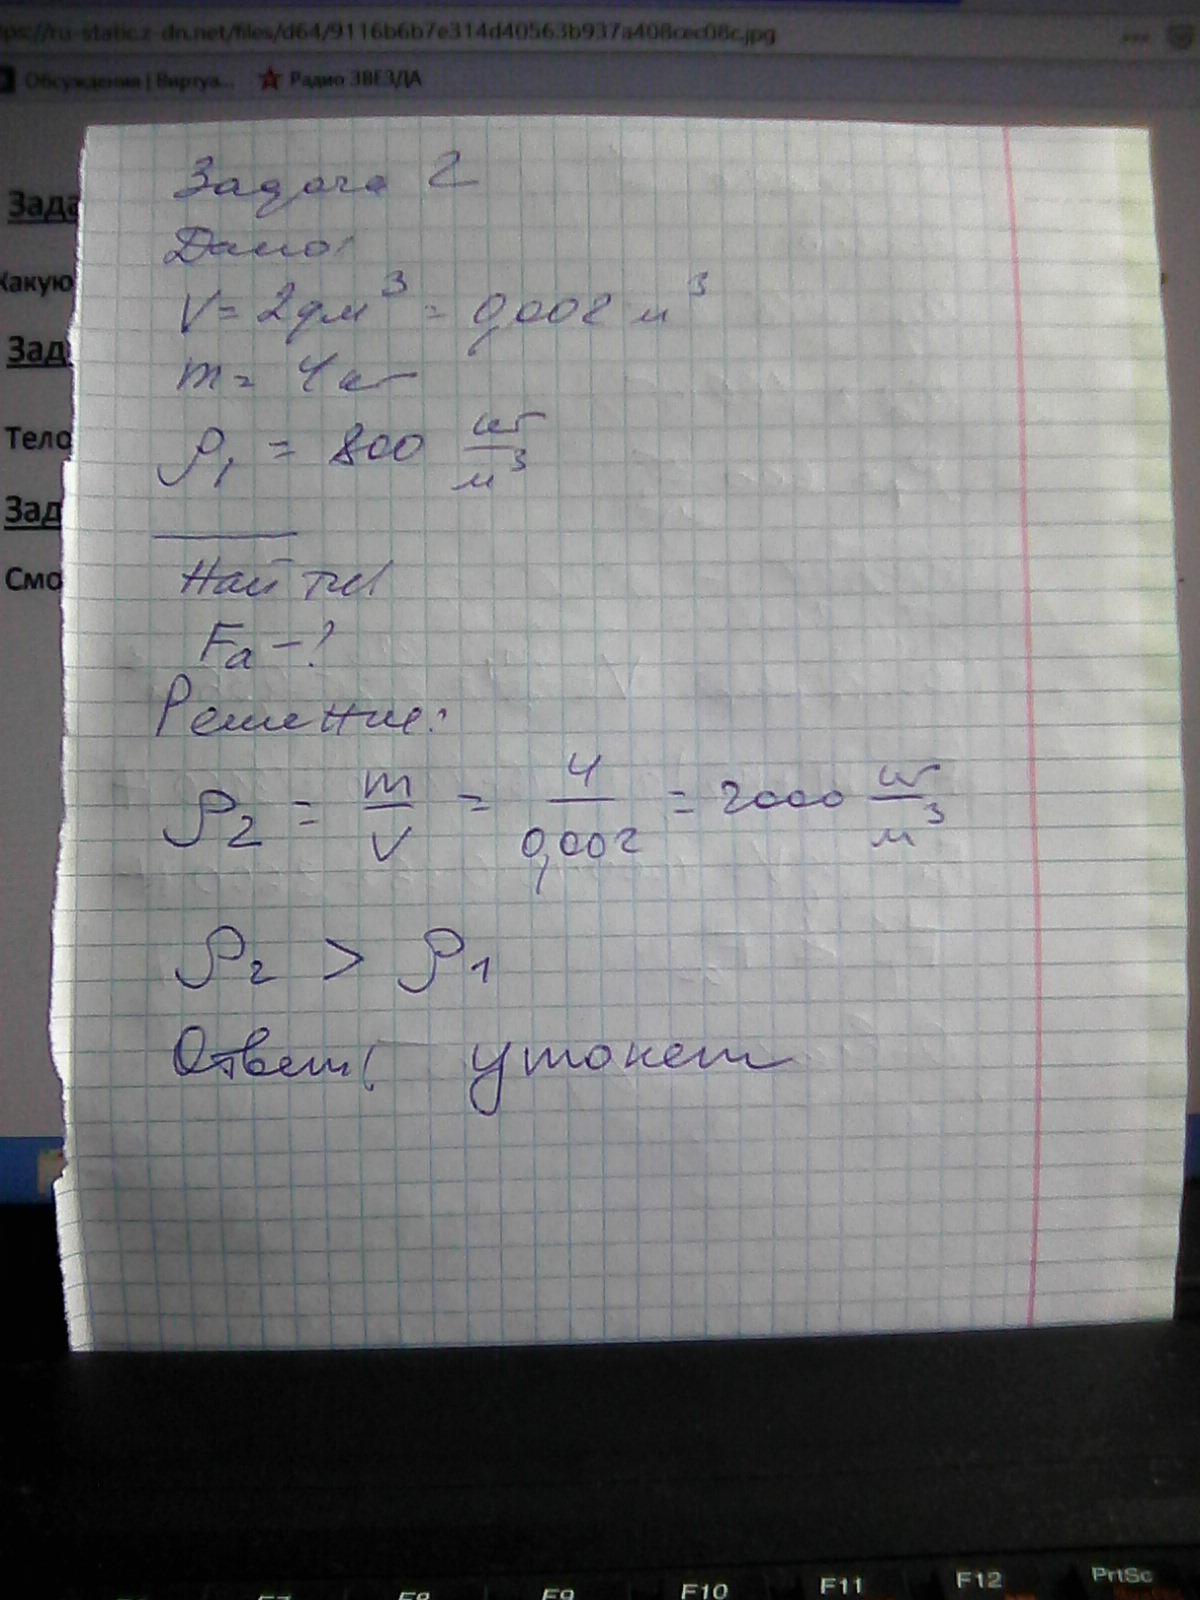 ps://ru-static.z-dn.net/files/d64/9116b6b7e314d40563b937a408cec08c.jpg
Обсуждения | Виртуа... Радио ЗВЕЗДА
Зада
Какую
Зад
Тело
Зад
Смо
Задача 2
Дано:
V = 2дм³ = 0,002 м³
m = 4 кг
ρ₁ = 800 кг/м³
Найти
Fa - ?
Решение:
ρ₂ = m/V = 4/0,002 = 2000 кг/м³
ρ₂ > ρ₁
Ответ: утонет
F8 F9 F10 F11 F12 PrtSc